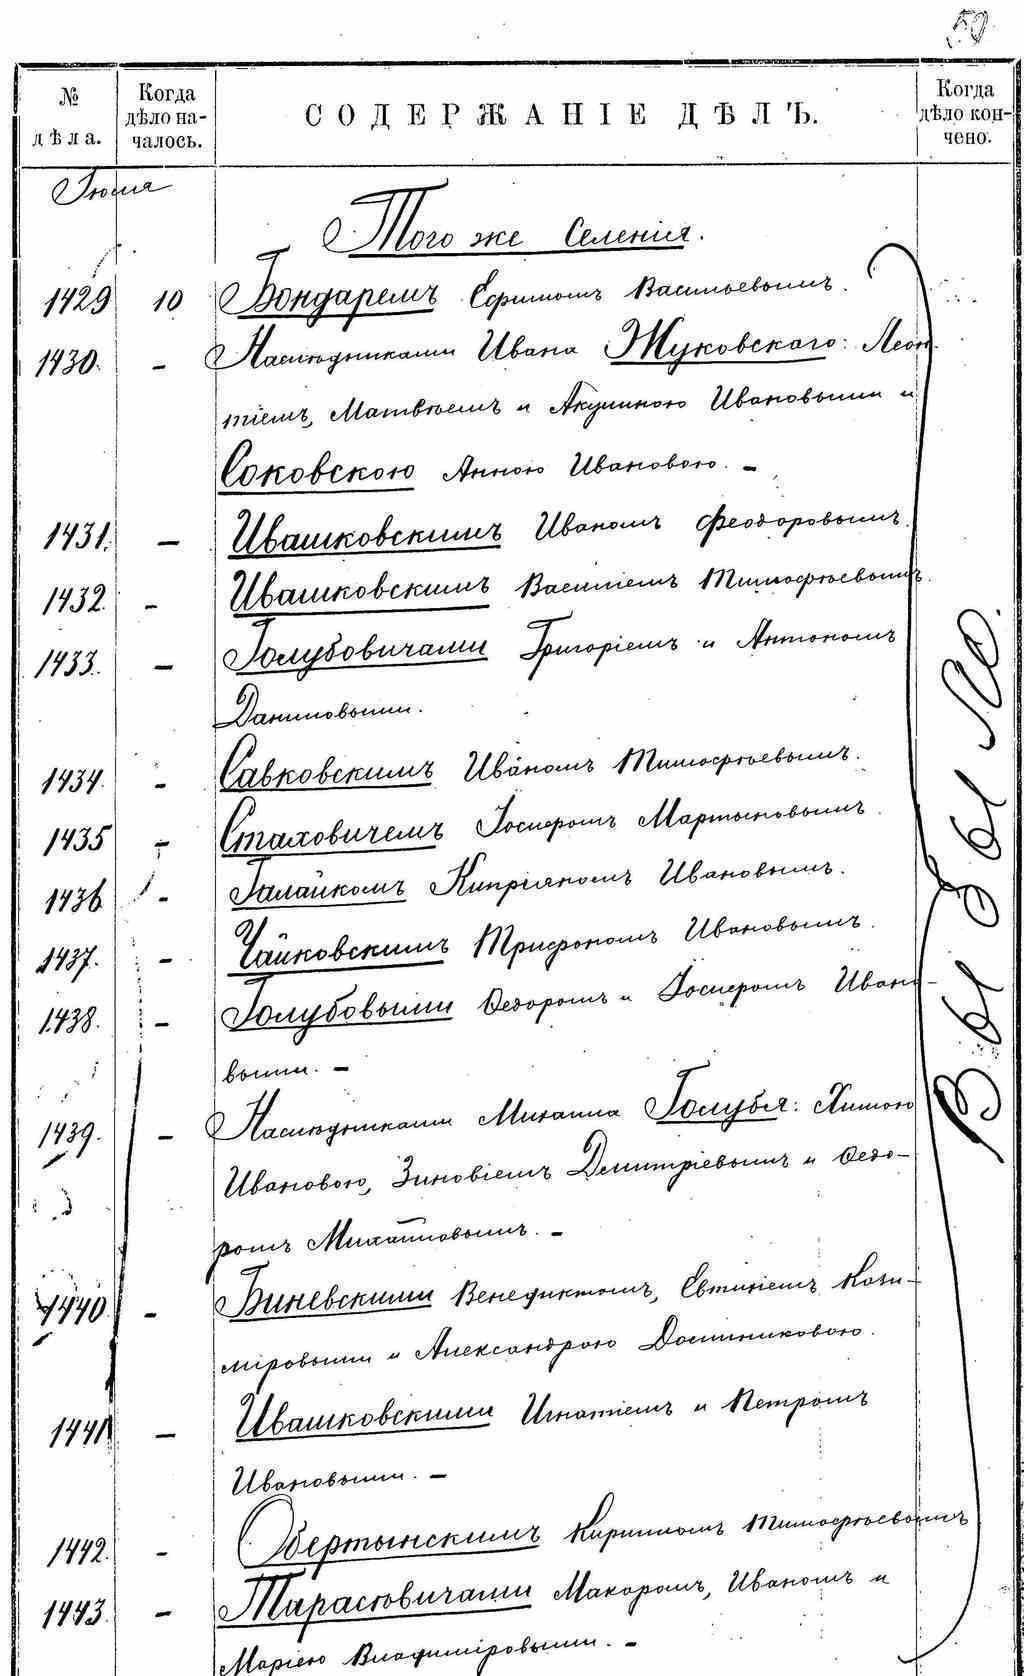 50
№ дѣла.
Когда дѣло началось.
СОДЕРЖАНІЕ ДѢЛЪ.
Когда дѣло кончено.
Іюля
Того же Селенія.
1429 10 Бондаремъ Ефимомъ Васильевымъ.
1430. - Наслѣдниками Ивана Жуковскаго: Леон-
тіемъ, Матвѣемъ и Акулиною Ивановыми и
Соковскою Анною Ивановою. -
1431. - Ивашковскимъ Иваномъ Феодоровымъ.
1432. - Ивашковскимъ Василіемъ Тимофѣевымъ.
1433. - Голубовичами Григоріемъ и Антономъ
Даниловыми.
1434. - Савковскимъ Иваномъ Тимофѣевымъ.
1435 - Стаховичемъ Іосифомъ Мартыновымъ.
1436 - Галайкомъ Кипріяномъ Ивановымъ.
1437. - Чайковскимъ Трифономъ Ивановымъ.
1438. - Голубовыми Ѳедоромъ и Іосифомъ Ивано-
выми. -
1439. - Наслѣдниками Михаила Голубя: Химою
Ивановою, Зиновіемъ Дмитріевымъ и Ѳедо-
ромъ Михайловымъ. -
1440 - Биневскими Венедиктомъ, Евтихіемъ Кази-
міровыми и Александрою Доминиковою.
1441 - Ивашковскими Игнатіемъ и Петромъ
Ивановыми. -
1442. - Обертынскимъ Кирилломъ Тимофѣевымъ
1443 - Тарасовичами Макаромъ, Иваномъ и
Маріею Владиміровыми. -
Выбыло.